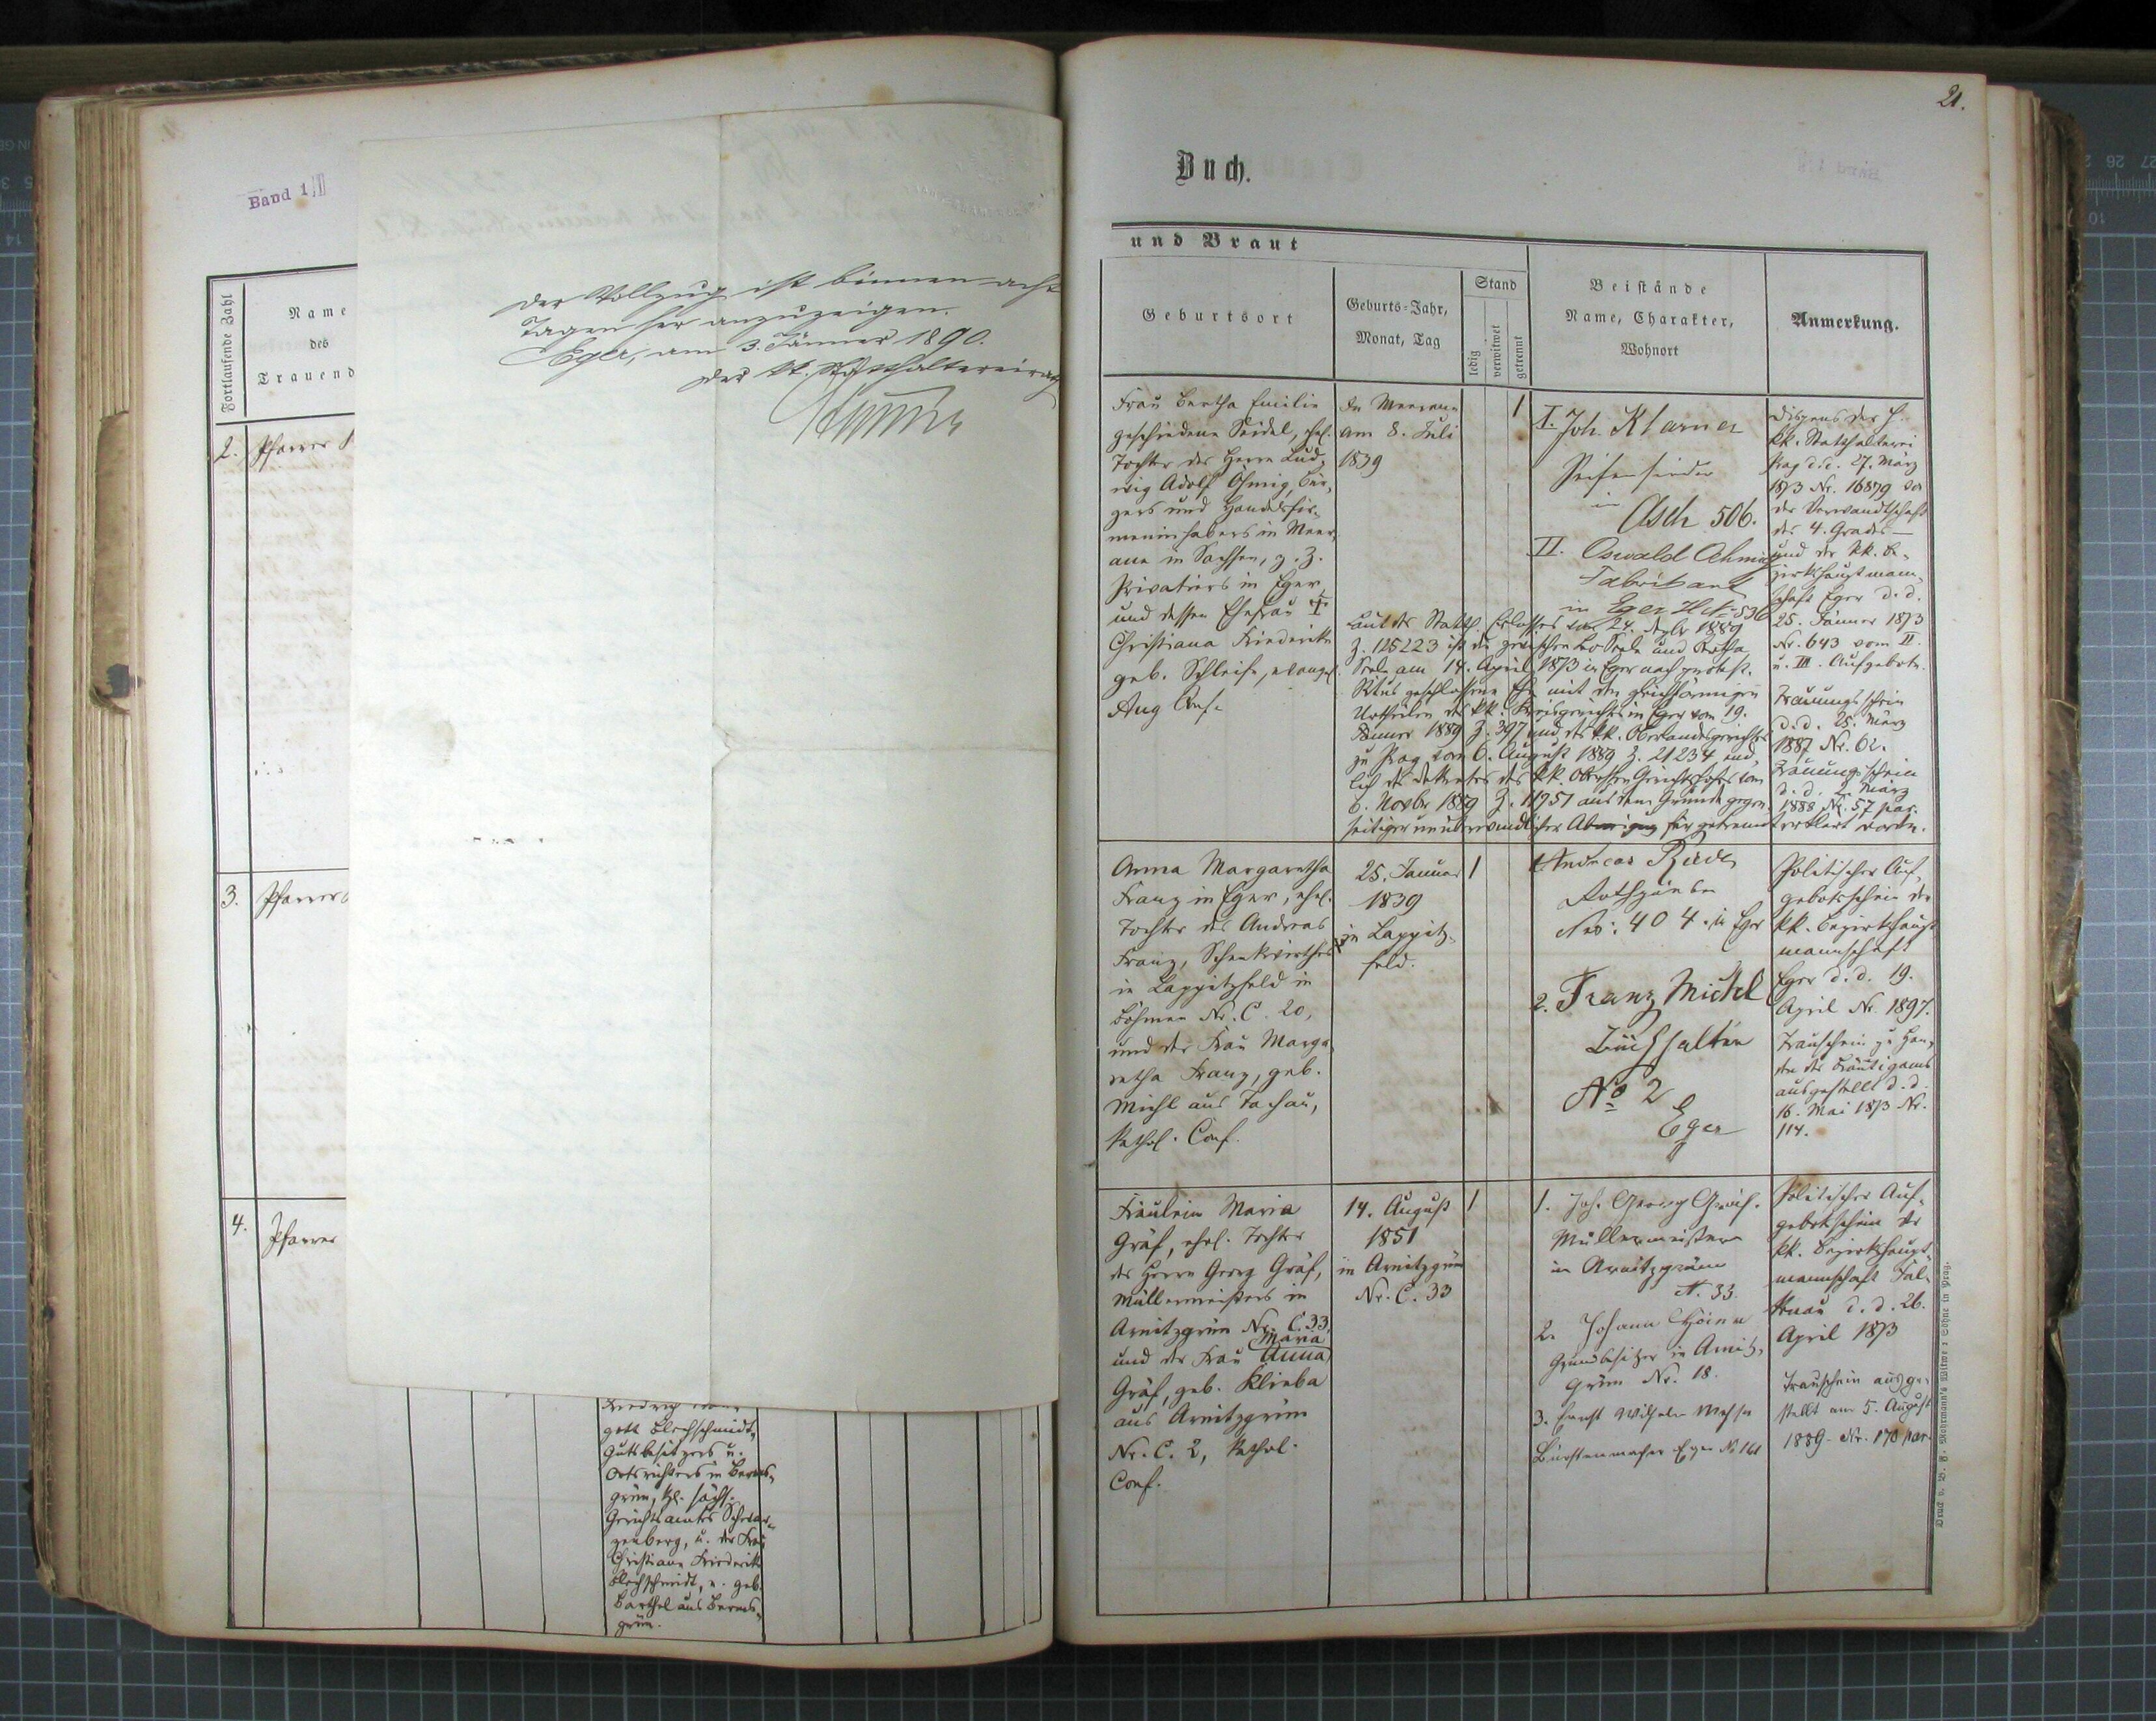 Band 1/II
Fortlaufende Zahl
Name
des
Trauend
2.
Pfarrer
3.
Pfarrer
4.
Pfarrer
der Vollzug ist binnen acht
Tagen her anzuzeigen.
Eger, am 3. Jänner 1890.
Der kk. Statthaltereirath
Friedrich
gott Blechschmidt,
Gutsbesitzers u.
Ortsrichters in Berms-
grün, kgl. sächs.
Gerichtsamtes Schwar-
zenberg, u. der Frau
Christiane Friederike
Blechschmidt, geb.
Barthel aus Berms-
grün.
21.
Buch.
und Braut
Geburtsort
Geburts-Jahr,
Monat, Tag
Stand
ledig
verwitwet
getrennt
Beistände
Name, Charakter,
Wohnort
Anmerkung.
Frau Bertha Emilie
geschiedene Seidel, ehel.
Tochter des Herrn Lud-
wig Adolf Öhmig, Bür-
gers und Handelsfir-
meninhabers in Meer-
ane in Sachsen, z. Z.
Privatiers in Eger
und dessen Ehefrau
Christiana Friederike
geb. Schleife, evangel.
Aug Conf.
In Meerane
am 8. Juli
1839
1
I. Joh. Klarner
Seifensieder
in
Asch 506.
II. Oswald Öhmig
Fabrikant
in Eger H No 536
Dispens der h.
kk. Statthalterei
Prag d.d. 27. März
1873 Nr. 16879 von
der Verwandtschaft
des 4. Grades –
und der kk. Be-
zirkshauptmann-
schaft Eger d. d.
25. Jänner 1873
Nr. 643 vom II.
u. III. Aufgebote.
Trauungsschein
d. d. 25. März
1887 Nr. 62.
Trauungsschein
d. d. 2. März
1888 Nr. 57 par.
Laut des Statth. Erlasses vom 24. Dezbr 1889
Z. 125223 ist die zwischen und Bertha
am 14. April 1873 in Eger nach protest.
Ritus geschlossene Ehe mit den gleichförmigen
Urtheilen des kk. Kreisgerichtes in Eger vom 19.
Jänner 1889 Z. 397 und des k.k. Oberlandesgerichtes
zu Prag vom 6. August 1889 Z. 21234 und
des Dekretes des kk. Obersten Gerichtshofes vom
6. Novbr 1889 Z. 11951 aus dem Grunde gegen-
seitiger unüberwindlicher Abneigung für getrennt erklärt worden.
Anna Margaretha
Franz in Eger, ehel.
Tochter des Andreas
Franz, Schenkwirthes
in Lappitzfeld in
Böhmen Nr. C. 20,
und der Frau Marga-
retha Franz, geb.
Michl aus Tachau,
kathol. Conf.
25. Januar
1839
in Lappitz-
feld.
1
1. Andreas
Rothgärber
Nro: 404. in Eger
2. Franz Michl
Buchhalter
No 2
Eger
Politischer Auf-
gebotsschein der
kk. Bezirkshaupt-
mannschaft
Eger d. d. 19.
April Nr. 1897.
Trauschein zu Han-
den des Bräutigams
ausgestellt d. d.
16. Mai 1873 Nr.
114.
Fräulein Maria
Gräf, ehel. Tochter
des Herrn Georg Gräf,
Müllermeisters in
Arnitzgrün Nr. C. 33,
Maria
und der Frau Anna
Gräf, geb. Klieba
aus Arnitzgrün
Nr. C. 2, kathol.
Conf.
14. August
1851
in Arnitzgrün
Nr. C. 33
1
1. Joh. Georg Gräf.
Müllermeister
in Arnitzgrün
N. 33.
2. Johann
Grundbesitzer in Arnitz-
grün Nr. 18.
3. Ernst Wilhelm
Bürstenmacher Eger N. 161
Politischer Auf-
gebotsschein der
kk. Bezirkshaupt-
mannschaft Fal-
kenau d. d. 26.
April 1873
Trauschein ausge-
stellt am 5. August
1889 Nr. 170 par.
Druck v. B. F. Mohrmann's Witwe & Söhne in Prag.